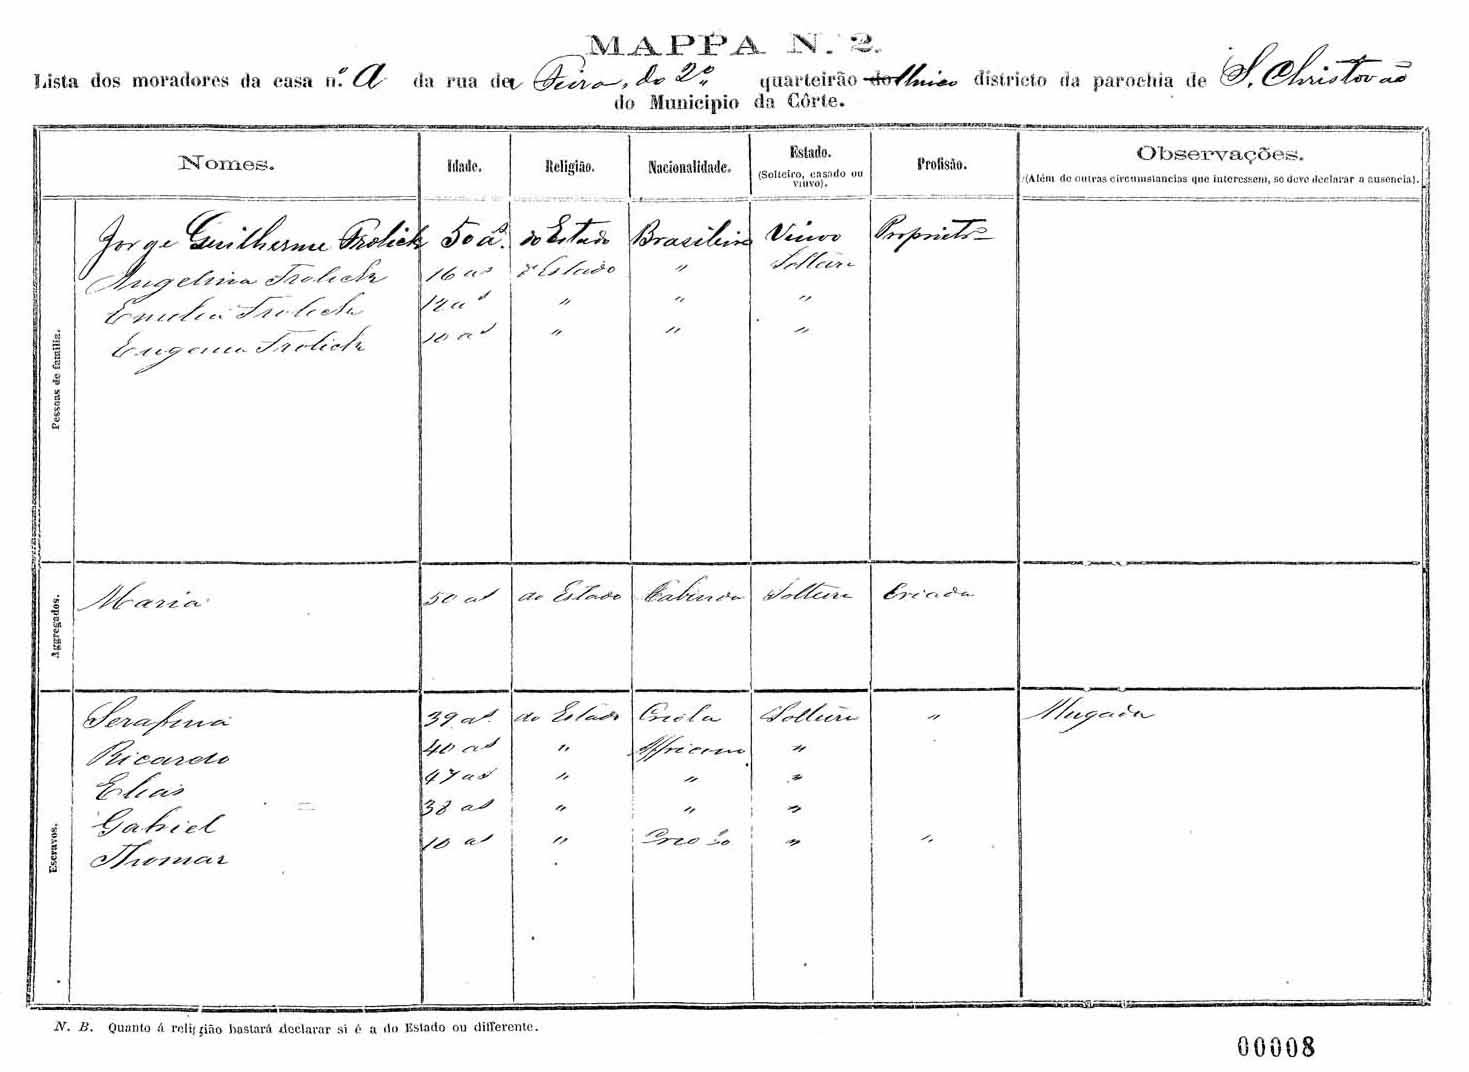 MAPPA N. 2.
Lista dos moradores da casa n.º A da rua da Feira, do 2º quarteirão do Unico districto da parochia de S. Christovão
do Municipio da Côrte.
Nomes. Idade. Religião. Nacionalidade. Estado. (Solteiro, casado ou viuvo). Profisão. Observações. (Além de outras circumstancias que interessem, se deve declarar a ausencia).
Pessoas de familia.
Jorge Guilherme Frolick 50 as. do Estado Brasileiro Viuvo Propriet.
Angelina Frolick 16 as do Estado " Solteira
Emilia Frolick 12 as " " "
Eugenia Frolick 10 as " " "
Aggregados.
Maria 50 as do Estado Cabinda Solteira Criada
Escravos.
Serafina 39 as do Estado Criola Solteira " Alugada
Ricardo 40 as " Africano "
Elias 47 as " " "
Gabriel 38 as " " "
Thomaz 10 as " Crioulo " "
N. B. Quanto á religião bastará declarar si é a do Estado ou differente.
00008